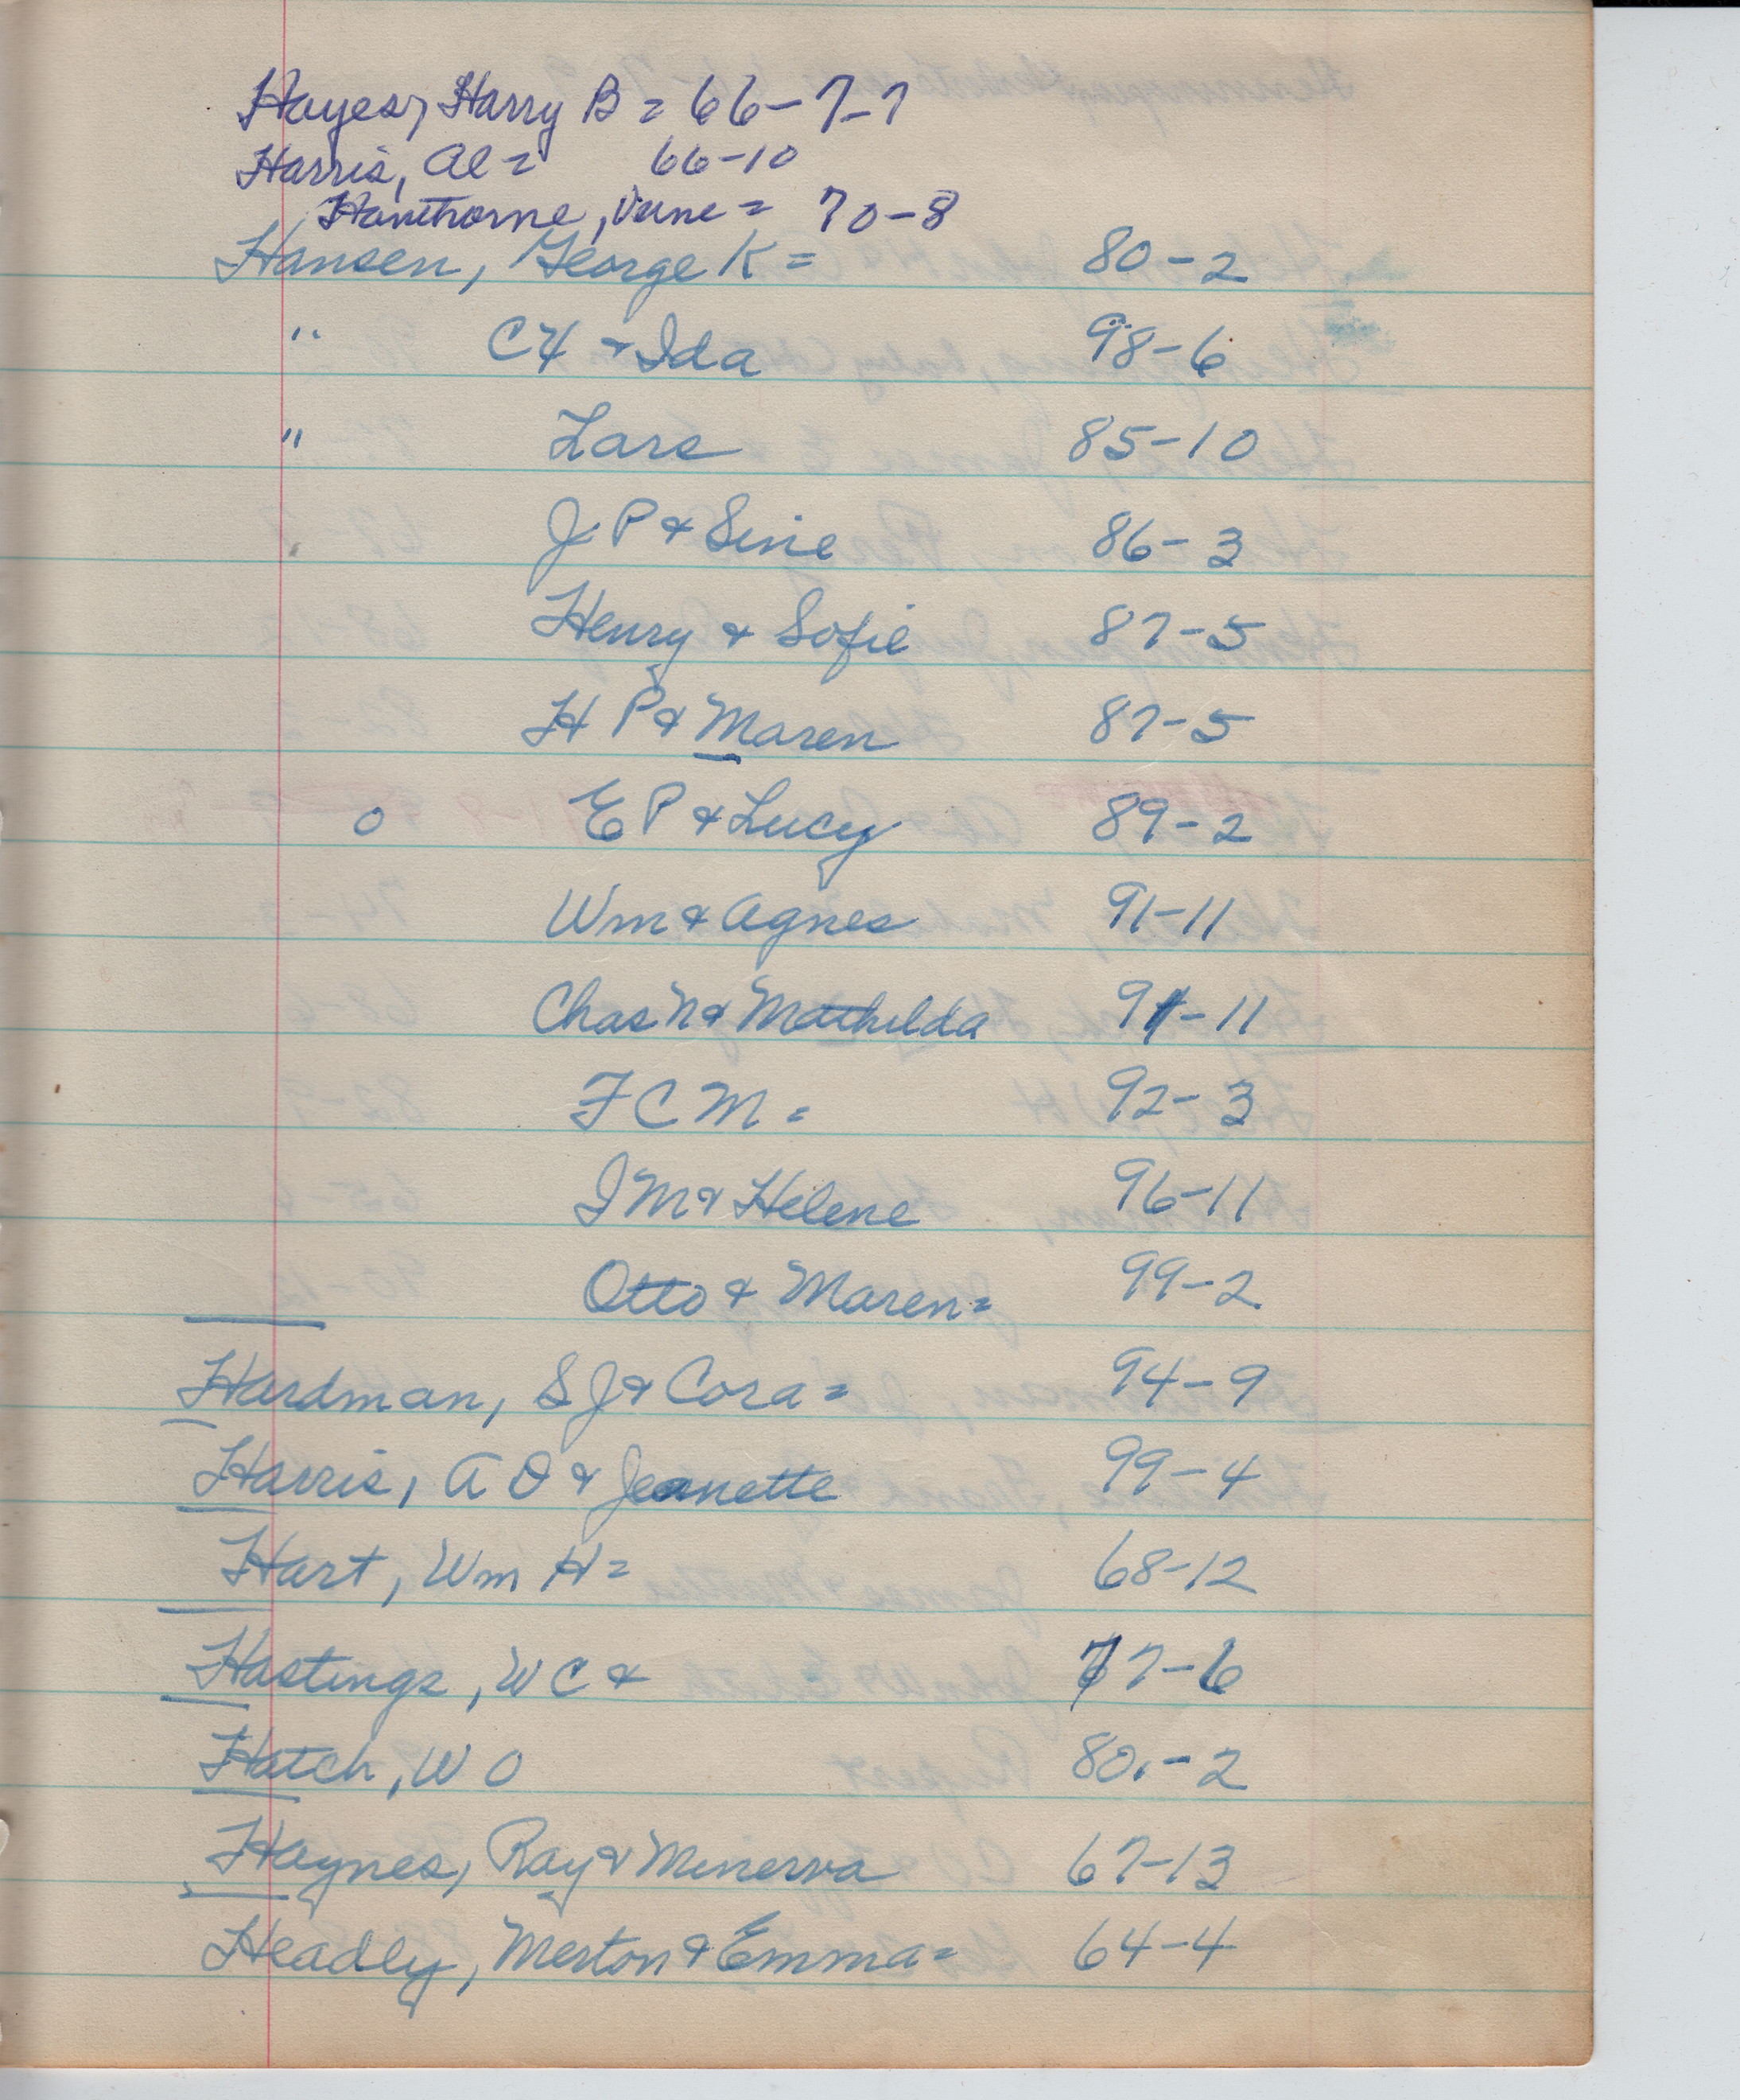 Hayes, Harry B = 66-7-7
Harris, Al = 66-10
Hawthorne, Verne = 70-8
Hansen, George K = 80-2
" CH & Ida 98-6
" Lars 85-10
J P & Sine 86-3
Henry & Sofie 87-5
H P & Maren 87-5
o E P & Lucy 89-2
Wm & Agnes 91-11
Chas N & Mathilda 91-11
F C M = 92-3
I M & Helene 96-11
Otto & Maren = 99-2
Hardman, S J & Cora = 94-9
Harris, A O & Jeanette 99-4
Hart, Wm H = 68-12
Hastings, W C & 77-6
Hatch, W O 80-2
Haynes, Ray & Minerva 67-13
Headly, Merton & Emma = 64-4